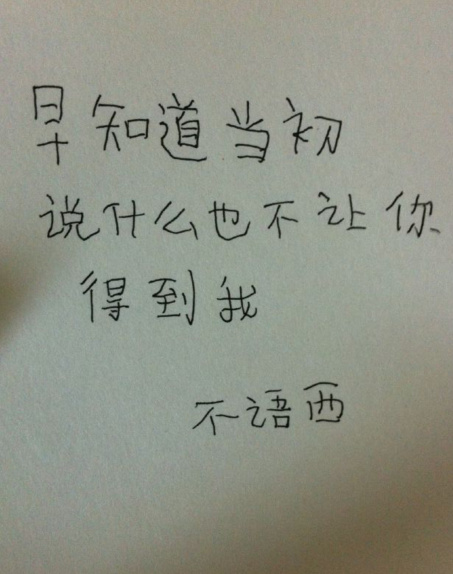 早知道当初
说什么也不让你
得到我
不语西